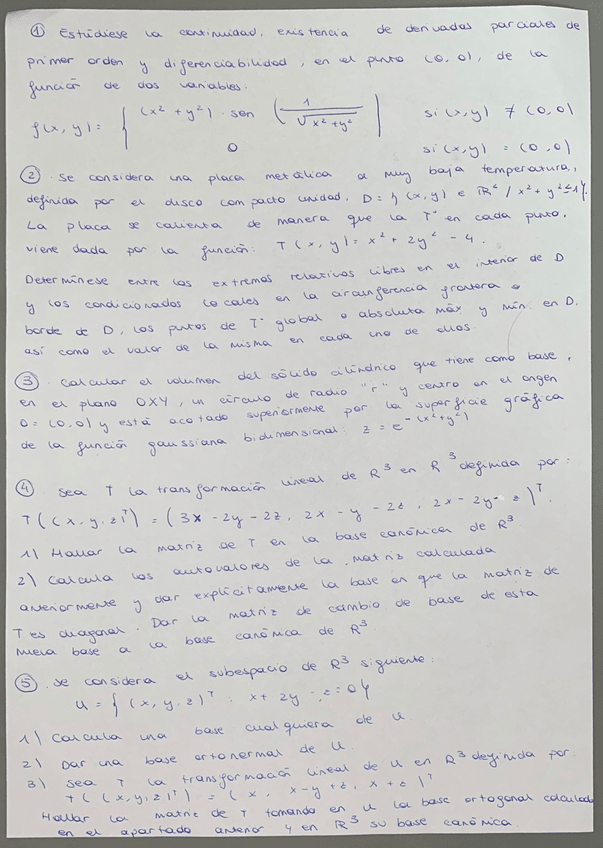 ① Estúdiese la continuidad, existencia de derivadas parciales de
primer orden y diferenciabilidad, en el punto (0,0), de la
función de dos variables:
f(x,y) = { (x² + y²) · sen (1/√(x²+y²)) si (x,y) ≠ (0,0)
0 si (x,y) = (0,0)
② Se considera una placa metálica a muy baja temperatura,
definida por el disco compacto unidad, D = {(x,y) ∈ ℝ² / x² + y² ≤ 1}.
La placa se calienta de manera que la Tª en cada punto,
viene dada por la función: T(x,y) = x² + 2y² - 4.
Determínese entre los extremos relativos libres en el interior de D
y los condicionados locales en la circunferencia frontera o
borde de D, los puntos de Tª global o absoluta máx y mín. en D,
así como el valor de la misma en cada uno de ellos.
③ Calcular el volumen del sólido cilíndrico que tiene como base,
en el plano OXY, un círculo de radio "r" y centro en el origen
O = (0,0) y está acotado superiormente por la superficie gráfica
de la función gaussiana bidimensional: z = e^-(x²+y²)
④ Sea T la transformación lineal de R³ en R³ definida por:
T((x,y,z)ᵀ) = (3x - 2y - 2z, 2x - y - 2z, 2x - 2y - z)ᵀ.
1) Hallar la matriz de T en la base canónica de R³
2) Calcula los autovalores de la matriz calculada
anteriormente y dar explícitamente la base en que la matriz de
T es diagonal. Dar la matriz de cambio de base de esta
nueva base a la base canónica de R³.
⑤ Se considera el subespacio de R³ siguiente:
U = {(x,y,z)ᵀ : x + 2y - z = 0}
1) Calcula una base cualquiera de U
2) Dar una base ortonormal de U.
3) Sea T la transformación lineal de U en R³ definida por:
T((x,y,z)ᵀ) = (x, x-y+z, x+z)ᵀ
Hallar la matriz de T tomando en U la base ortogonal calculada
en el apartado anterior y en ℝ³ su base canónica.